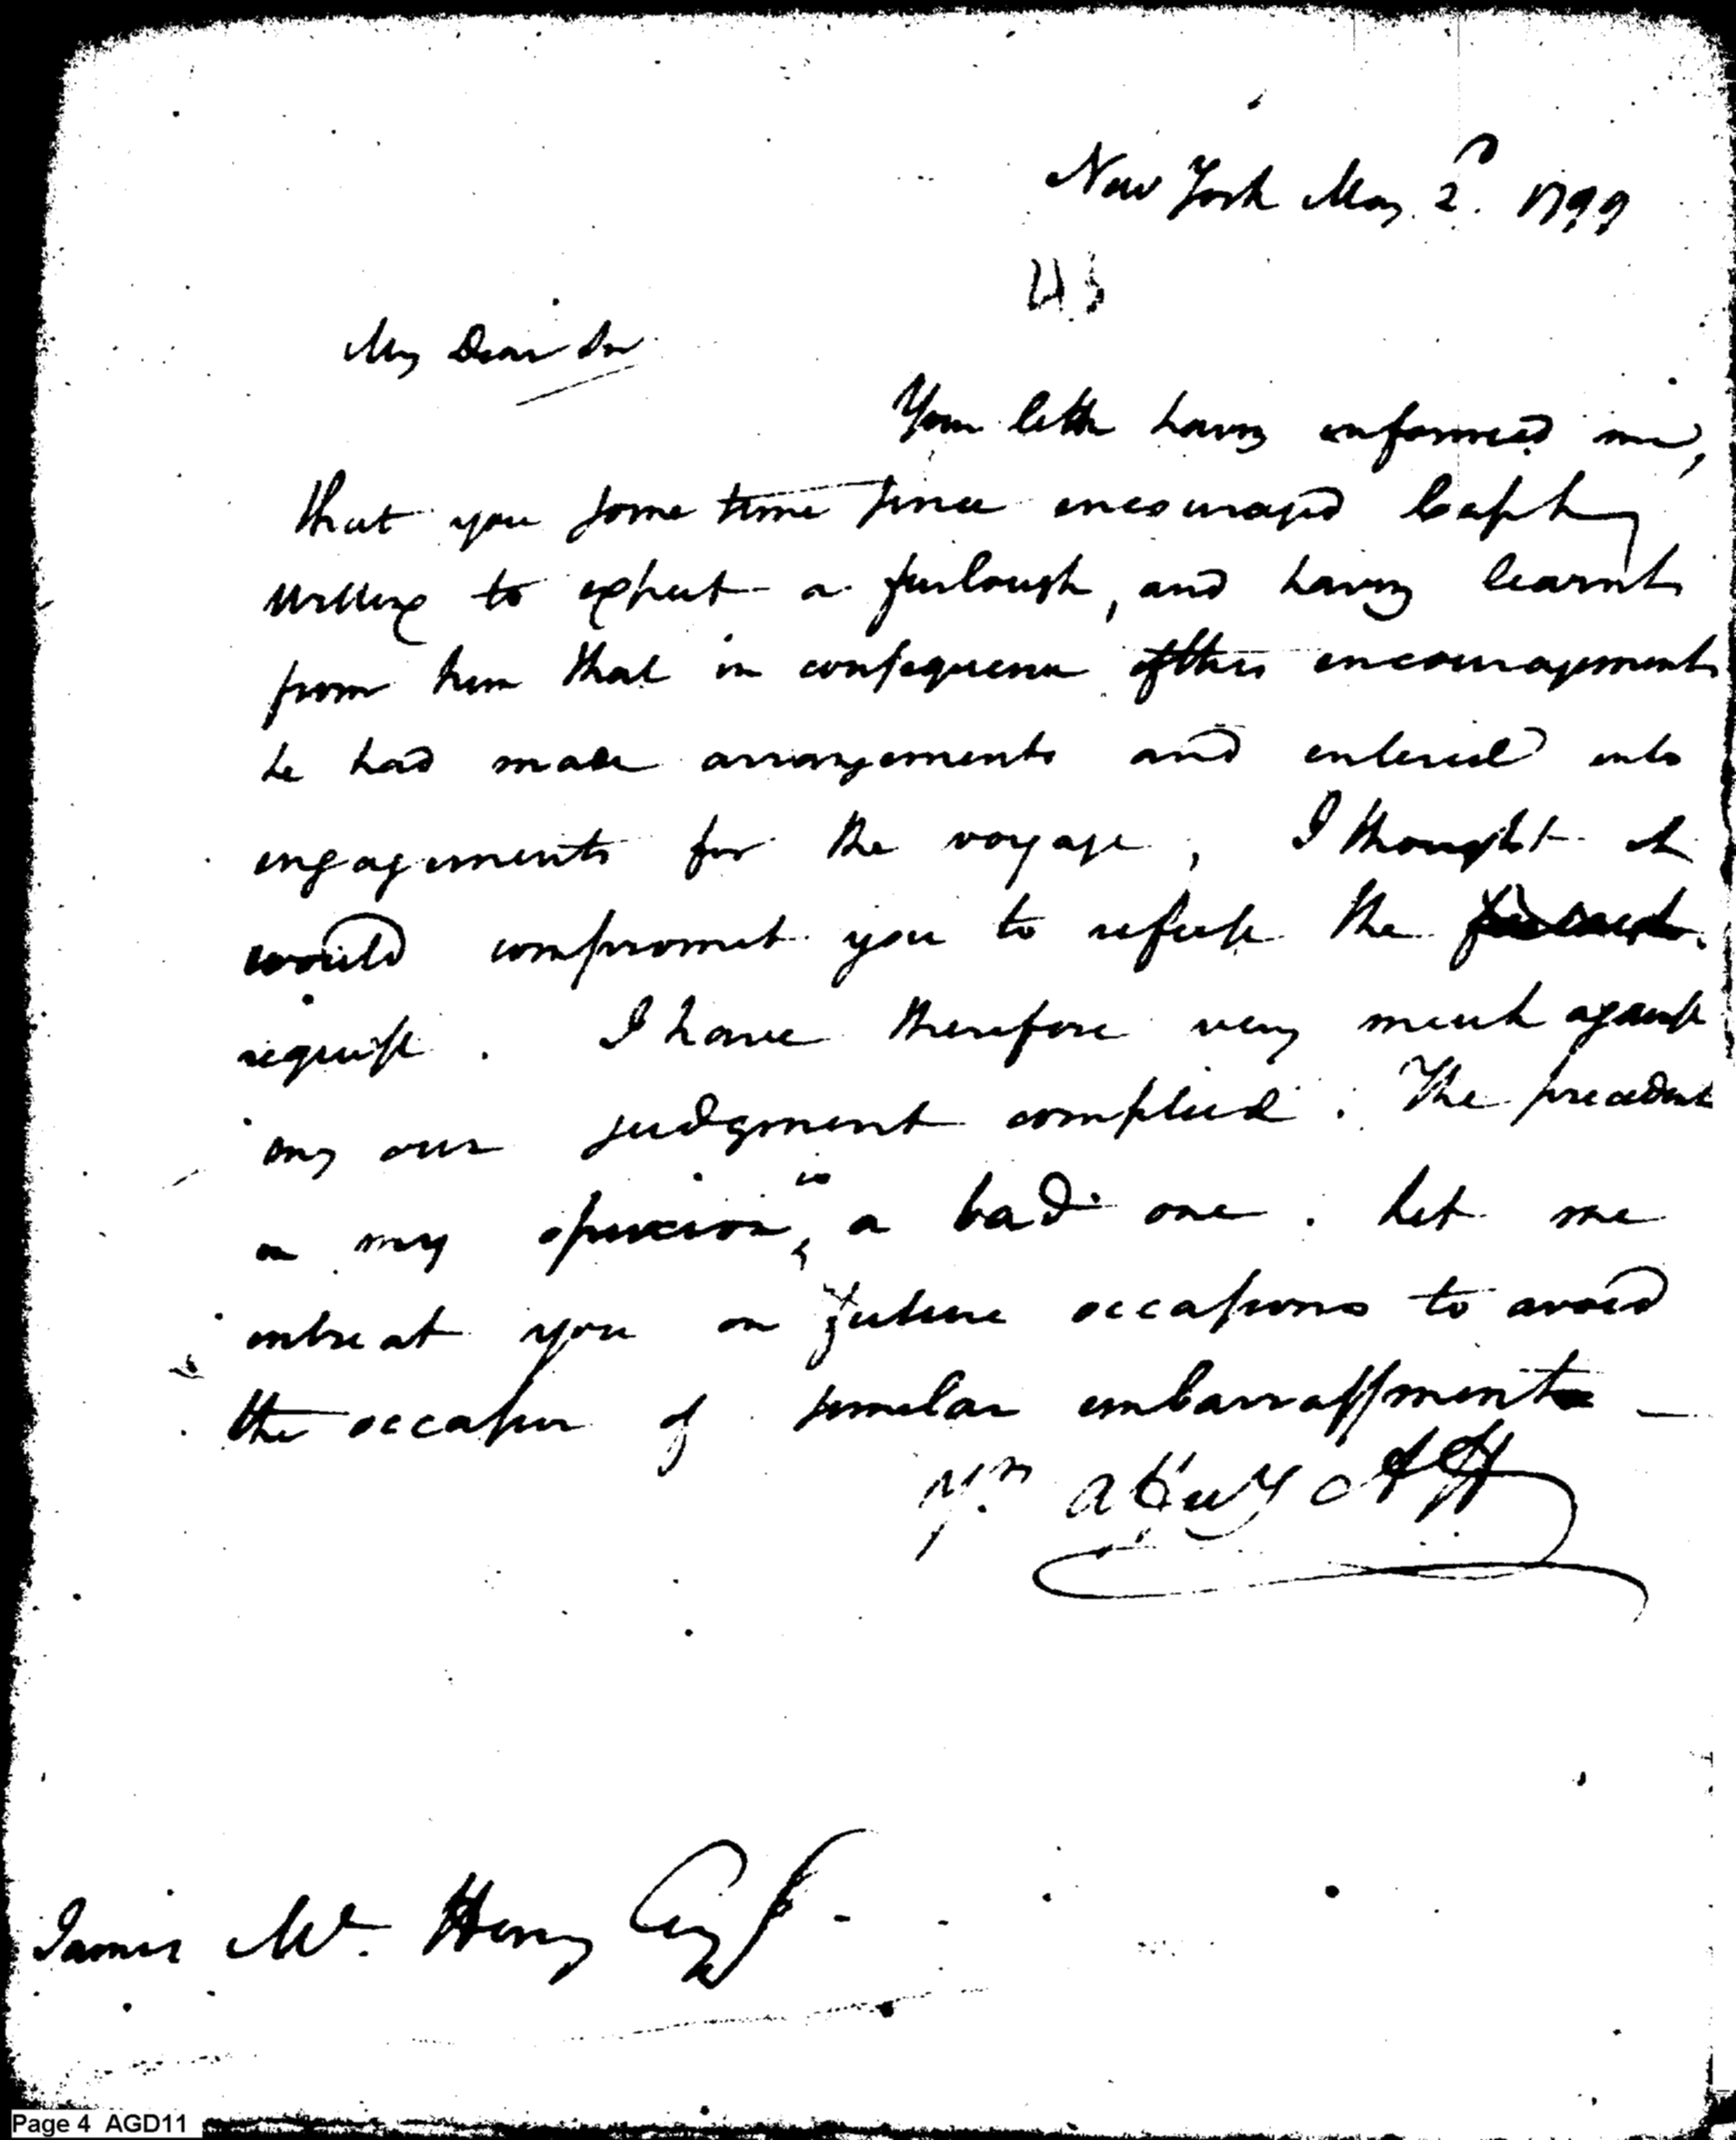 New York May 2d. 1799
My Dear Sir
Your letter having informed me,
that you some time since encouraged Capt
to expect a furlough, and having learnt
from him that in consequence of this encouragement
he had made arrangements and entered into
engagements for the voyage, I thought it
would compromit you to refuse the
request. I have therefore very much against
my own judgment complied. The precedent
in my opinion, is a bad one. Let me
entreat you on future occasions to avoid
the occasion of similar embarrassment —
Yrs. Affecly AH
James Mc. Henry Esqr
Page 4 AGD11